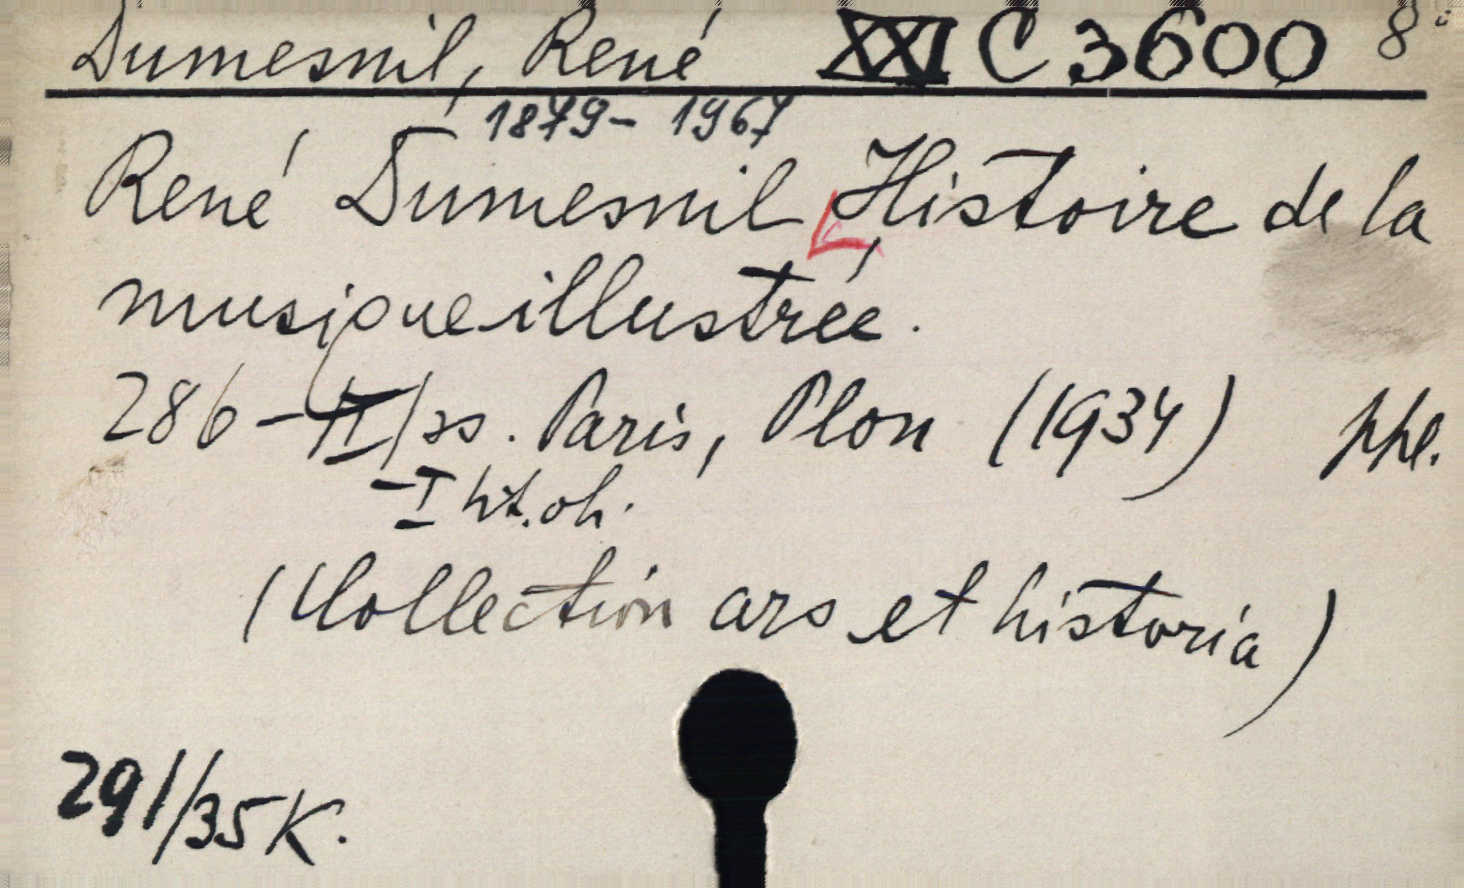 Dumesnil, René XXI C 3600 8°
1879-1967
René Dumesnil Histoire de la
musique illustrée.
286 - II / ss. Paris, Plon (1934) ppl.
- I ht. oh.
(Collection ars et historia)
291/35 K.